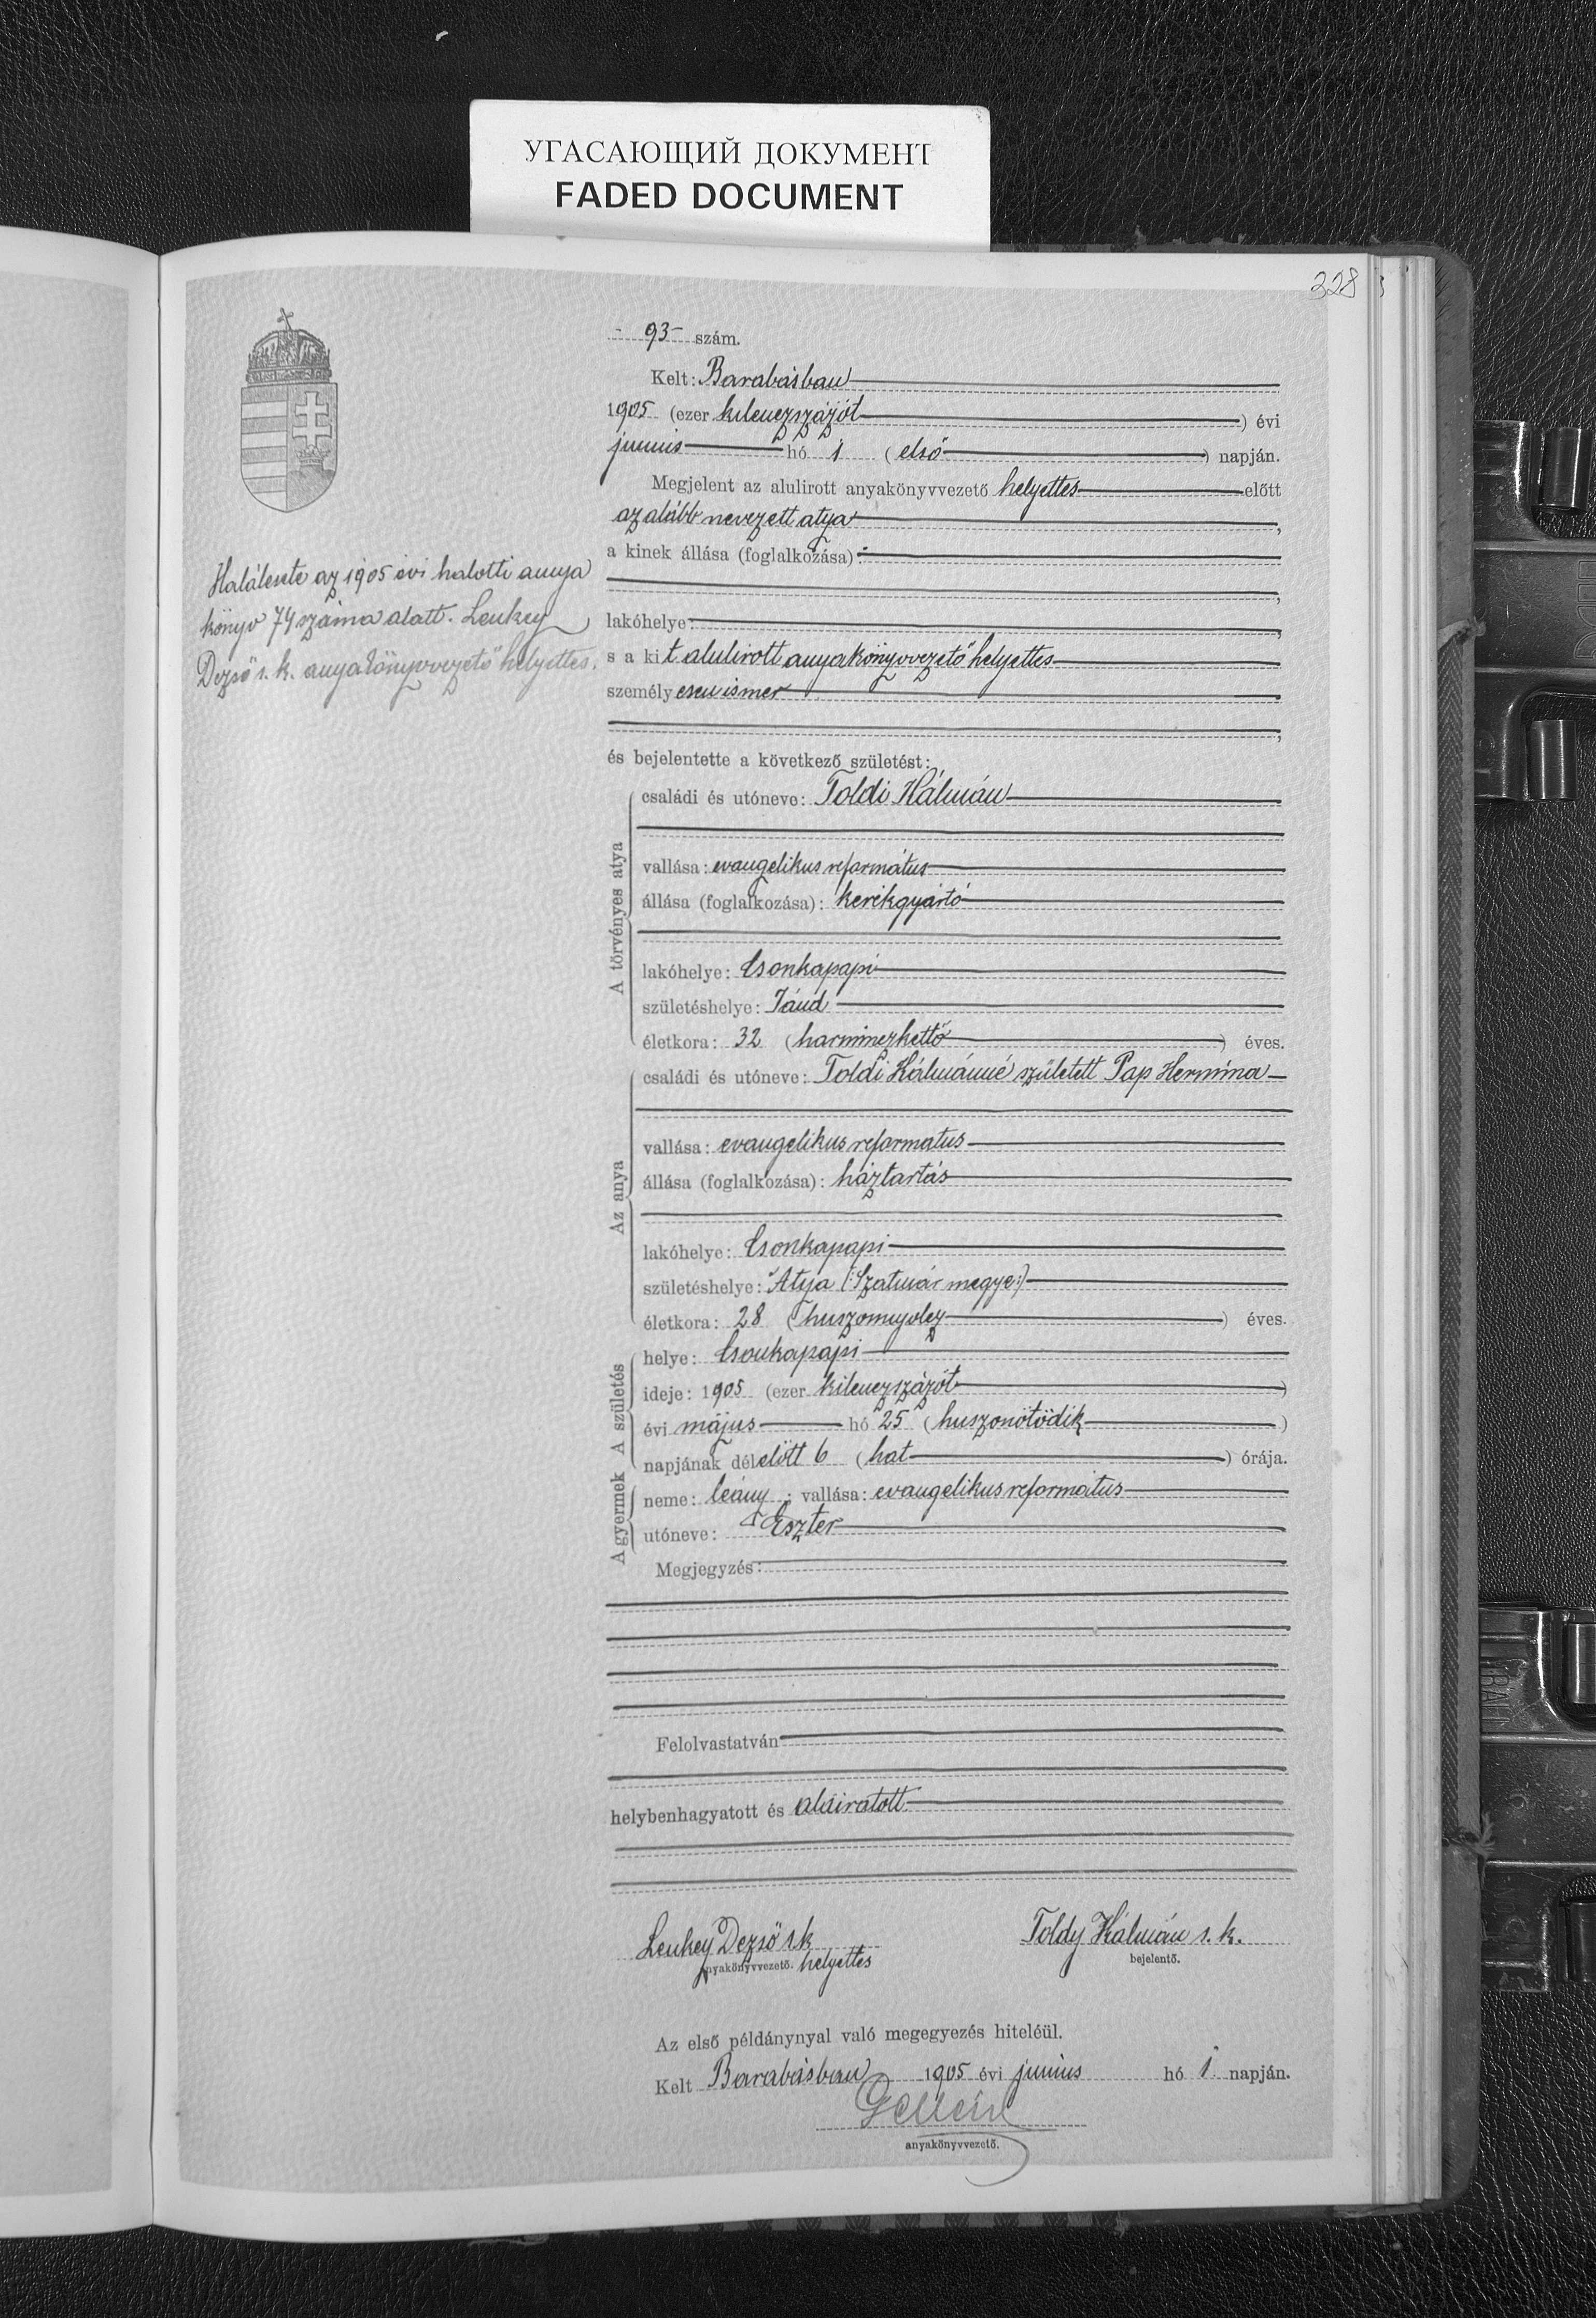 УГАСАЮЩИЙ ДОКУМЕНТ
FADED DOCUMENT
328
93 szám.
Kelt: Barabásban
1905 (ezer kilenczszázöt) évi
junius hó 1 (első) napján.
Megjelent az alulirott anyakönyvvezető helyettes előtt
az alább nevezett atya,
a kinek állása (foglalkozása):
lakóhelye:
s a kit alulirott anyakönyvvezető helyettes
személyesen ismer
és bejelentette a következő születést:
A törvényes atya
családi és utóneve: Toldi Kálmán
vallása: evangelikus református
állása (foglalkozása): kerékgyártó
lakóhelye: Csonkapapi
születéshelye: Jánd
életkora: 32 (harminczkettő) éves.
Az anya
családi és utóneve: Toldi Kálmánné született Pap Hermina
vallása: evangelikus reformatus
állása (foglalkozása): háztartás
lakóhelye: Csonkapapi
születéshelye: Atya (:Szatmár megye:)
életkora: 28 (huszonnyolcz) éves.
A születés
helye: Csonkapapi
ideje: 1905 (ezer kilenczszázöt)
évi május hó 25 (huszonötödik)
napjának délelőtt 6 (hat) órája.
A gyermek
neme: leány; vallása: evangelikus református
utóneve: Eszter
Megjegyzés:
Felolvastatván
helybenhagyatott és aláiratott
Lenkey Dezső s.k. Toldy Kálmán s. k.
anyakönyvvezető. helyettes bejelentő.
Az első példánynyal való megegyezés hiteléül.
Kelt Barabásban 1905 évi junius hó 1 napján.
anyakönyvvezető.
Halálesete az 1905 évi halotti anya
könyv 74 száma alatt. Lenkey
Dezső s. k. anyakönyvvezető helyettes.